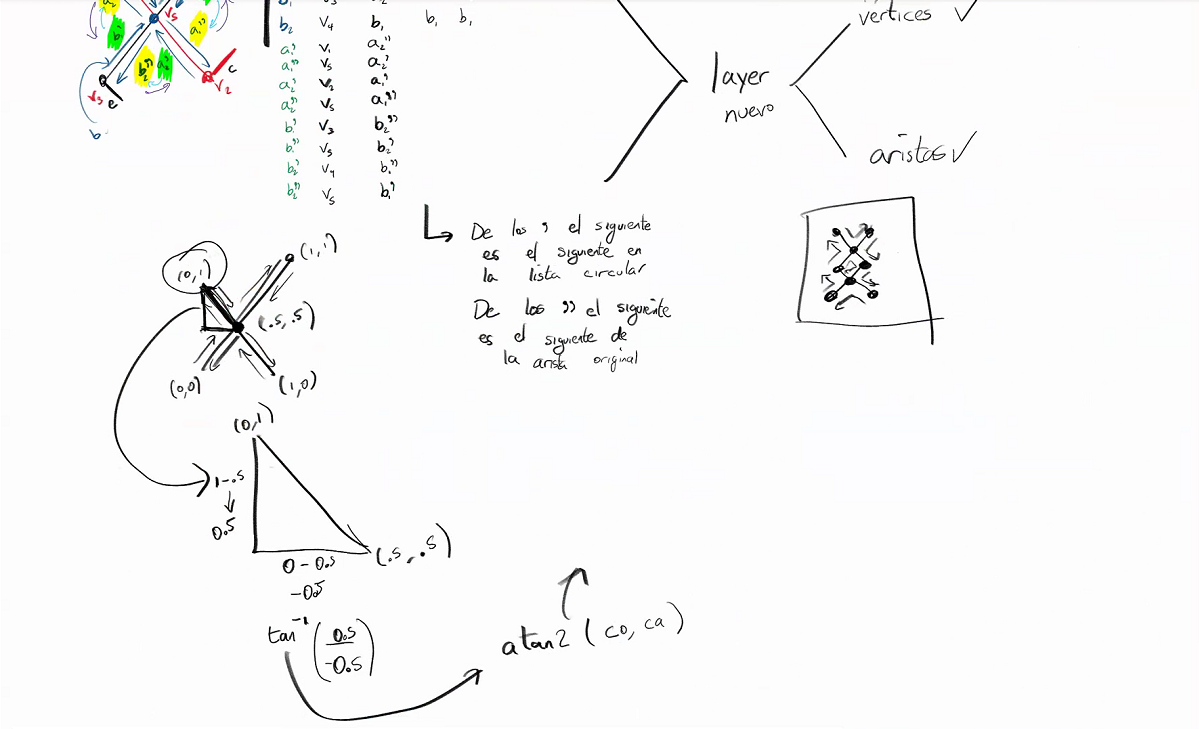 V5
b1'
a1''
b2''
a2'
V3
e
V2
c
b
b2 V4 b1
b1 b1
a1' V1 a2''
a1'' V5 a2'
a2' V2 a1'
a2'' V5 a1''
b1' V3 b2''
b1'' V5 b2'
b2' V4 b1''
b2'' V5 b1'
vertices ✓
layer
nuevo
aristas ✓
De los ' el siguiente
es el siguiente en
la lista circular
De los '' el siguiente
es el siguiente de
la arista original
(0,1)
(1,1)
(.5,.5)
(0,0)
(1,0)
(0,1)
1-.5
0.5
(.5,.5)
0-0.5
-0.5
tan⁻¹ (0.5/-0.5)
atan2 (co, ca)